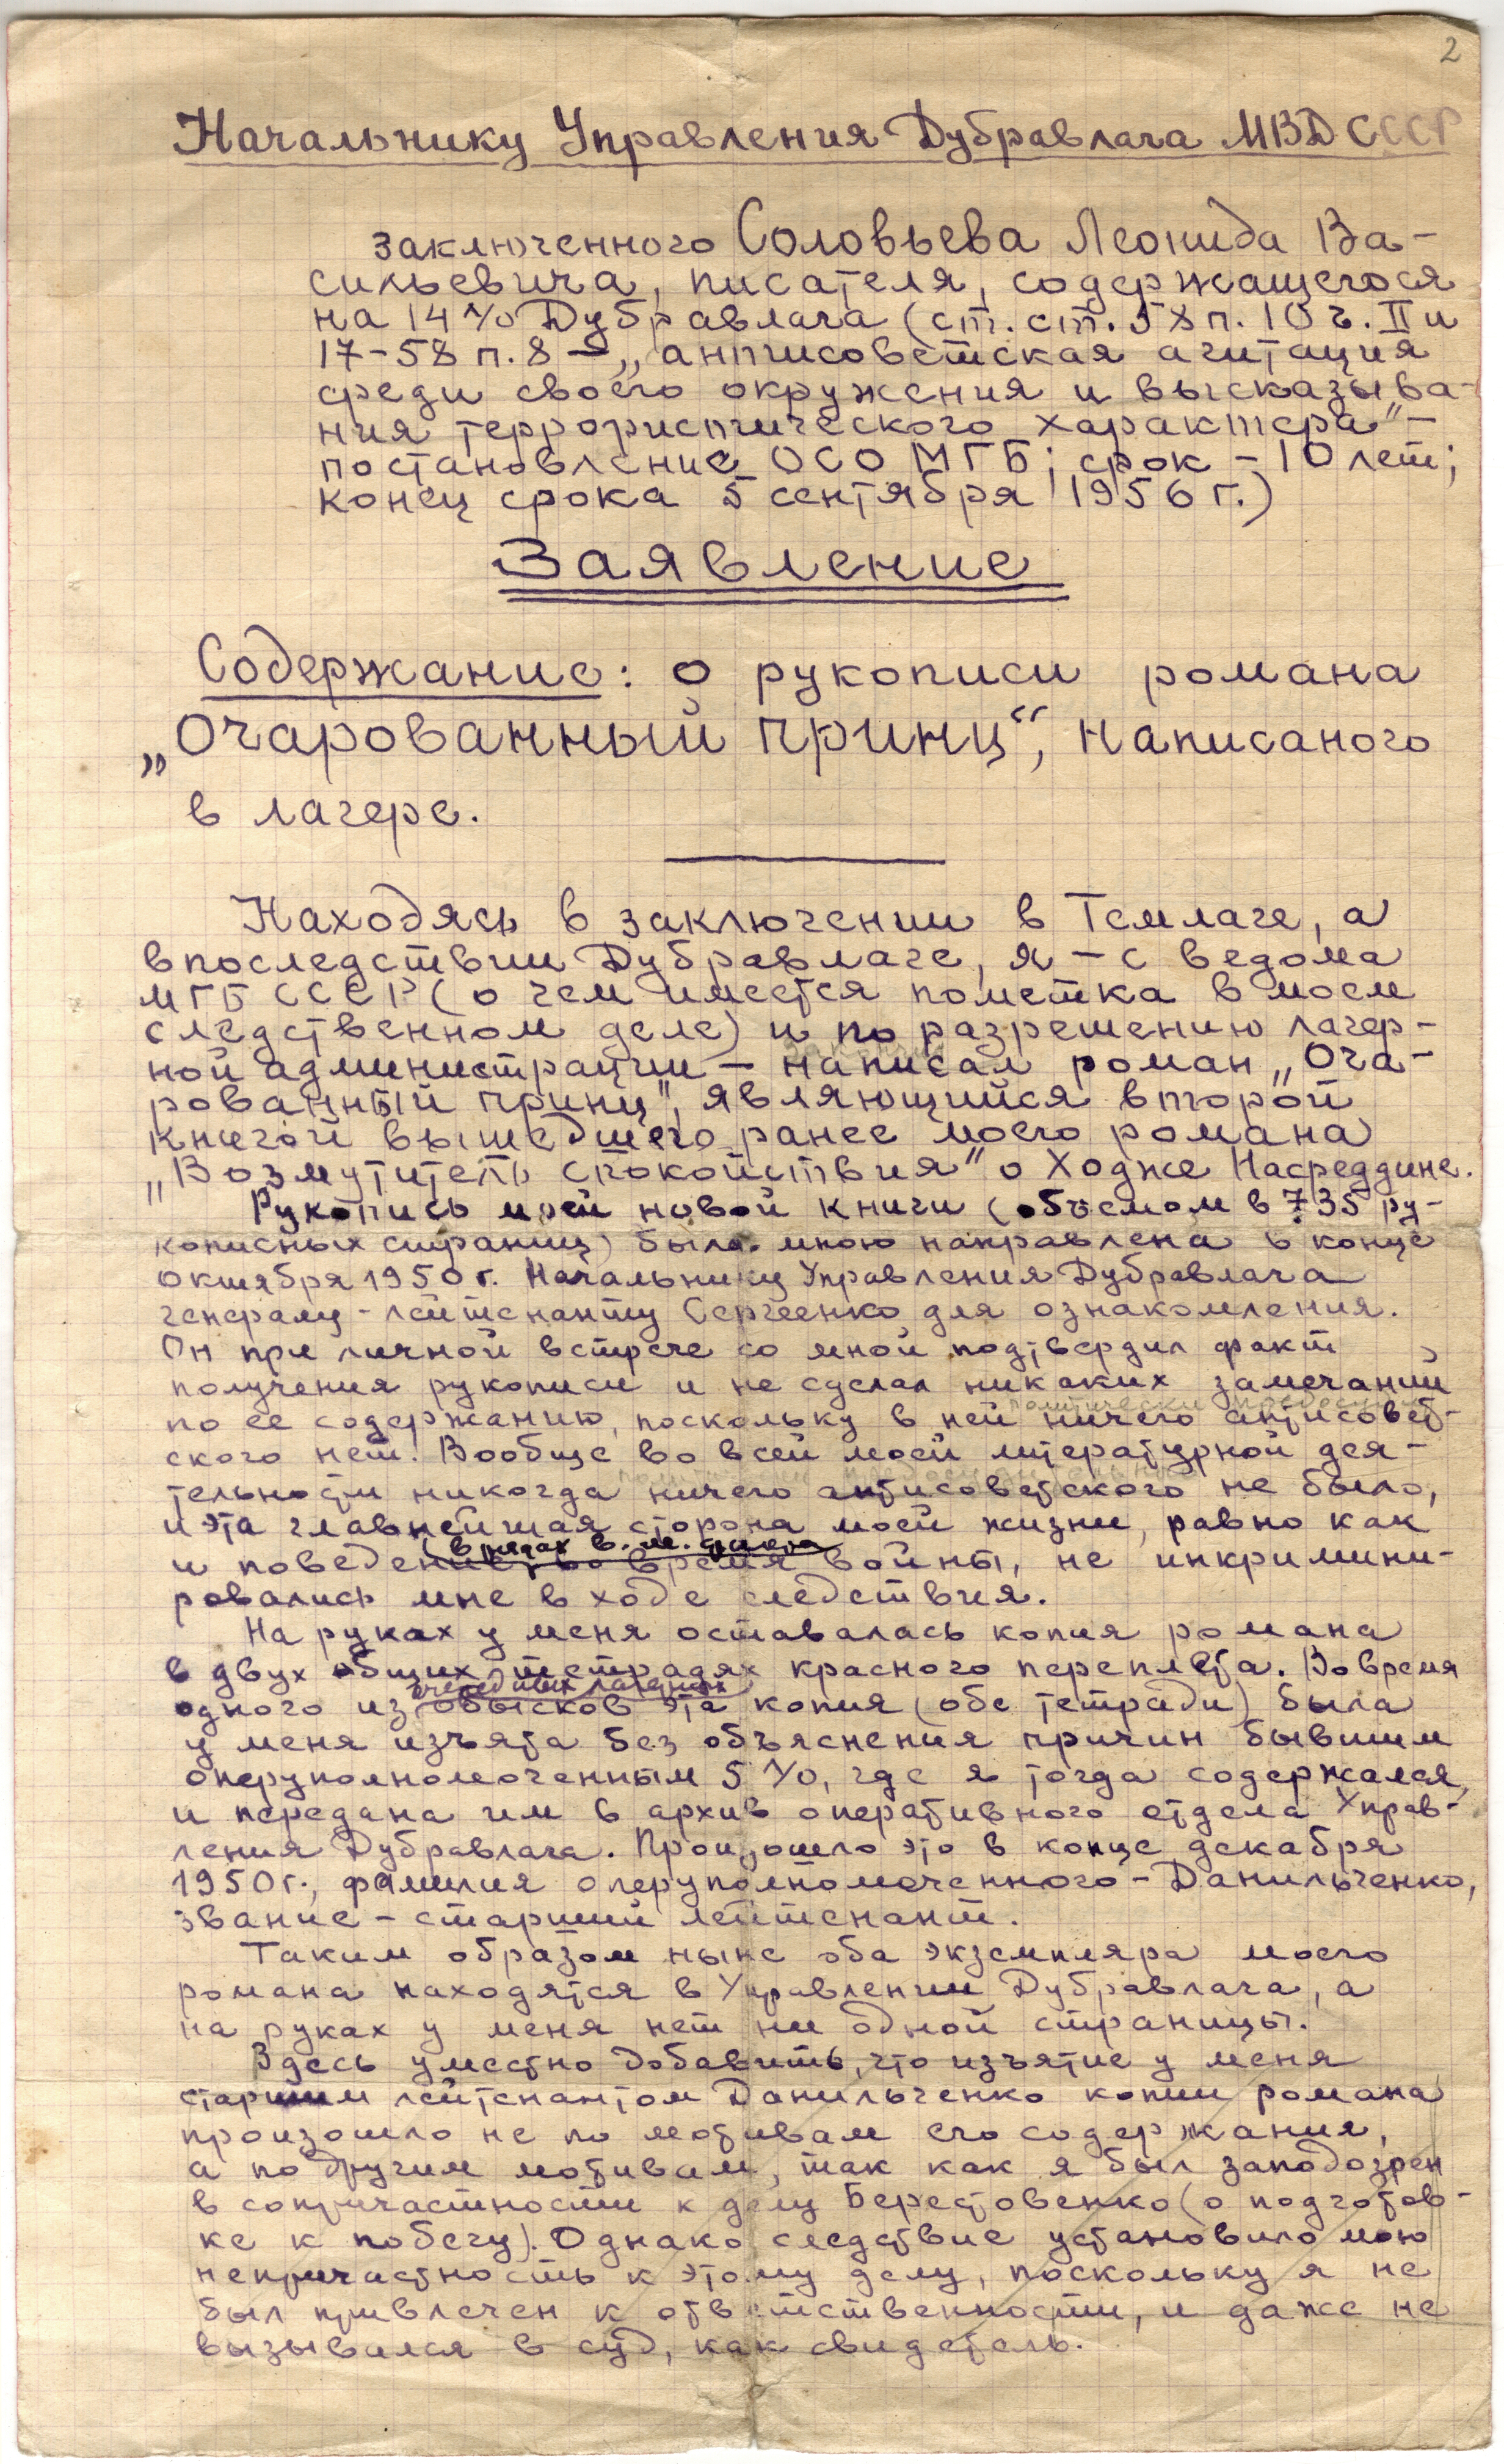 2
Начальнику Управления Дубравлага МВД СССР
заключенного Соловьева Леонида Ва-
сильевича, писателя, содержащегося
на 14 л/о Дубравлага (ст. ст. 58 п. 10 ч. II и
17-58 п. 8 – „антисоветская агитация
среди своего окружения и высказыва-
ния террористического характера" –
постановление ОСО МГБ; срок – 10 лет;
конец срока 5 сентября 1956 г.)
Заявление
Содержание: о рукописи романа
„Очарованный принц“, написаного
в лагере.
Находясь в заключении в Темлаге, а
впоследствии Дубравлаге, я – с ведома
МГБ СССР (о чем имеется пометка в моем
следственном деле) и по разрешению лагер-
ной администрации – написал роман „Оча-
рованный принц", являющийся второй
книгой вышедшего ранее моего романа
„Возмутитель спокойствия" о Ходже Насреддине.
Рукопись моей новой книги (объемом в 735 ру-
кописных страниц) была мною направлена в конце
октября 1950 г. Начальнику Управления Дубравлага
генералу-лейтенанту Сергеенко для ознакомления.
Он при личной встрече со мной подтвердил факт
получения рукописи и не сделал никаких замечаний
по ее содержанию, поскольку в ней ничего антисовет-
ского нет. Вообще во всей моей литературной дея-
тельности никогда ничего антисоветского не было,
и эта главнейшая сторона моей жизни, равно как
(в рядах в. м. флота)
и поведение во время войны, не инкримини-
ровались мне в ходе следствия.
На руках у меня оставалась копия романа
в двух общих тетрадях красного переплета. Во время
очередных лагерных
одного из обысков эта копия (обе тетради) была
у меня изъята без объяснения причин бывшим
оперуполномоченным 5 л/о, где я тогда содержался,
и передана им в архив оперативного отдела Управ-
ления Дубравлага. Произошло это в конце декабря
1950 г., фамилия оперуполномоченного – Данильченко,
звание – старший лейтенант.
Таким образом ныне оба экземпляра моего
романа находятся в Управлении Дубравлага, а
на руках у меня нет ни одной страницы.
Здесь уместно добавить, что изъятие у меня
старшим лейтенантом Данильченко копии романа
произошло не по мотивам его содержания,
а по другим мотивам, так как я был заподозрен
в сопричастности к делу Берестовенко (о подготов-
ке к побегу). Однако следствие установило мою
непричастность к этому делу, поскольку я не
был привлечен к ответственности, и даже не
вызывался в суд, как свидетель.